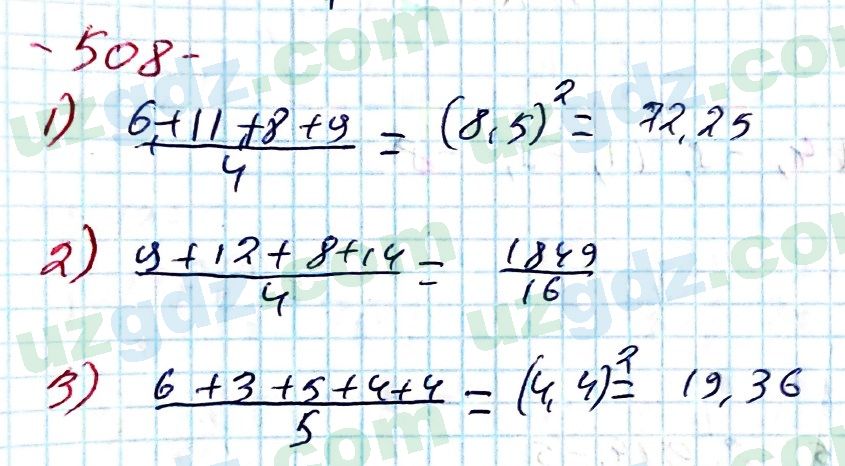 - 508 -
1) (6+11+8+9)/4 = (8,5)² = 72,25
2) (9+12+8+14)/4 = 1849/16
3) (6+3+5+4+4)/5 = (4,4)² = 19,36
uzgdz.com
uzgdz.com
uzgdz.com
uzgdz.com